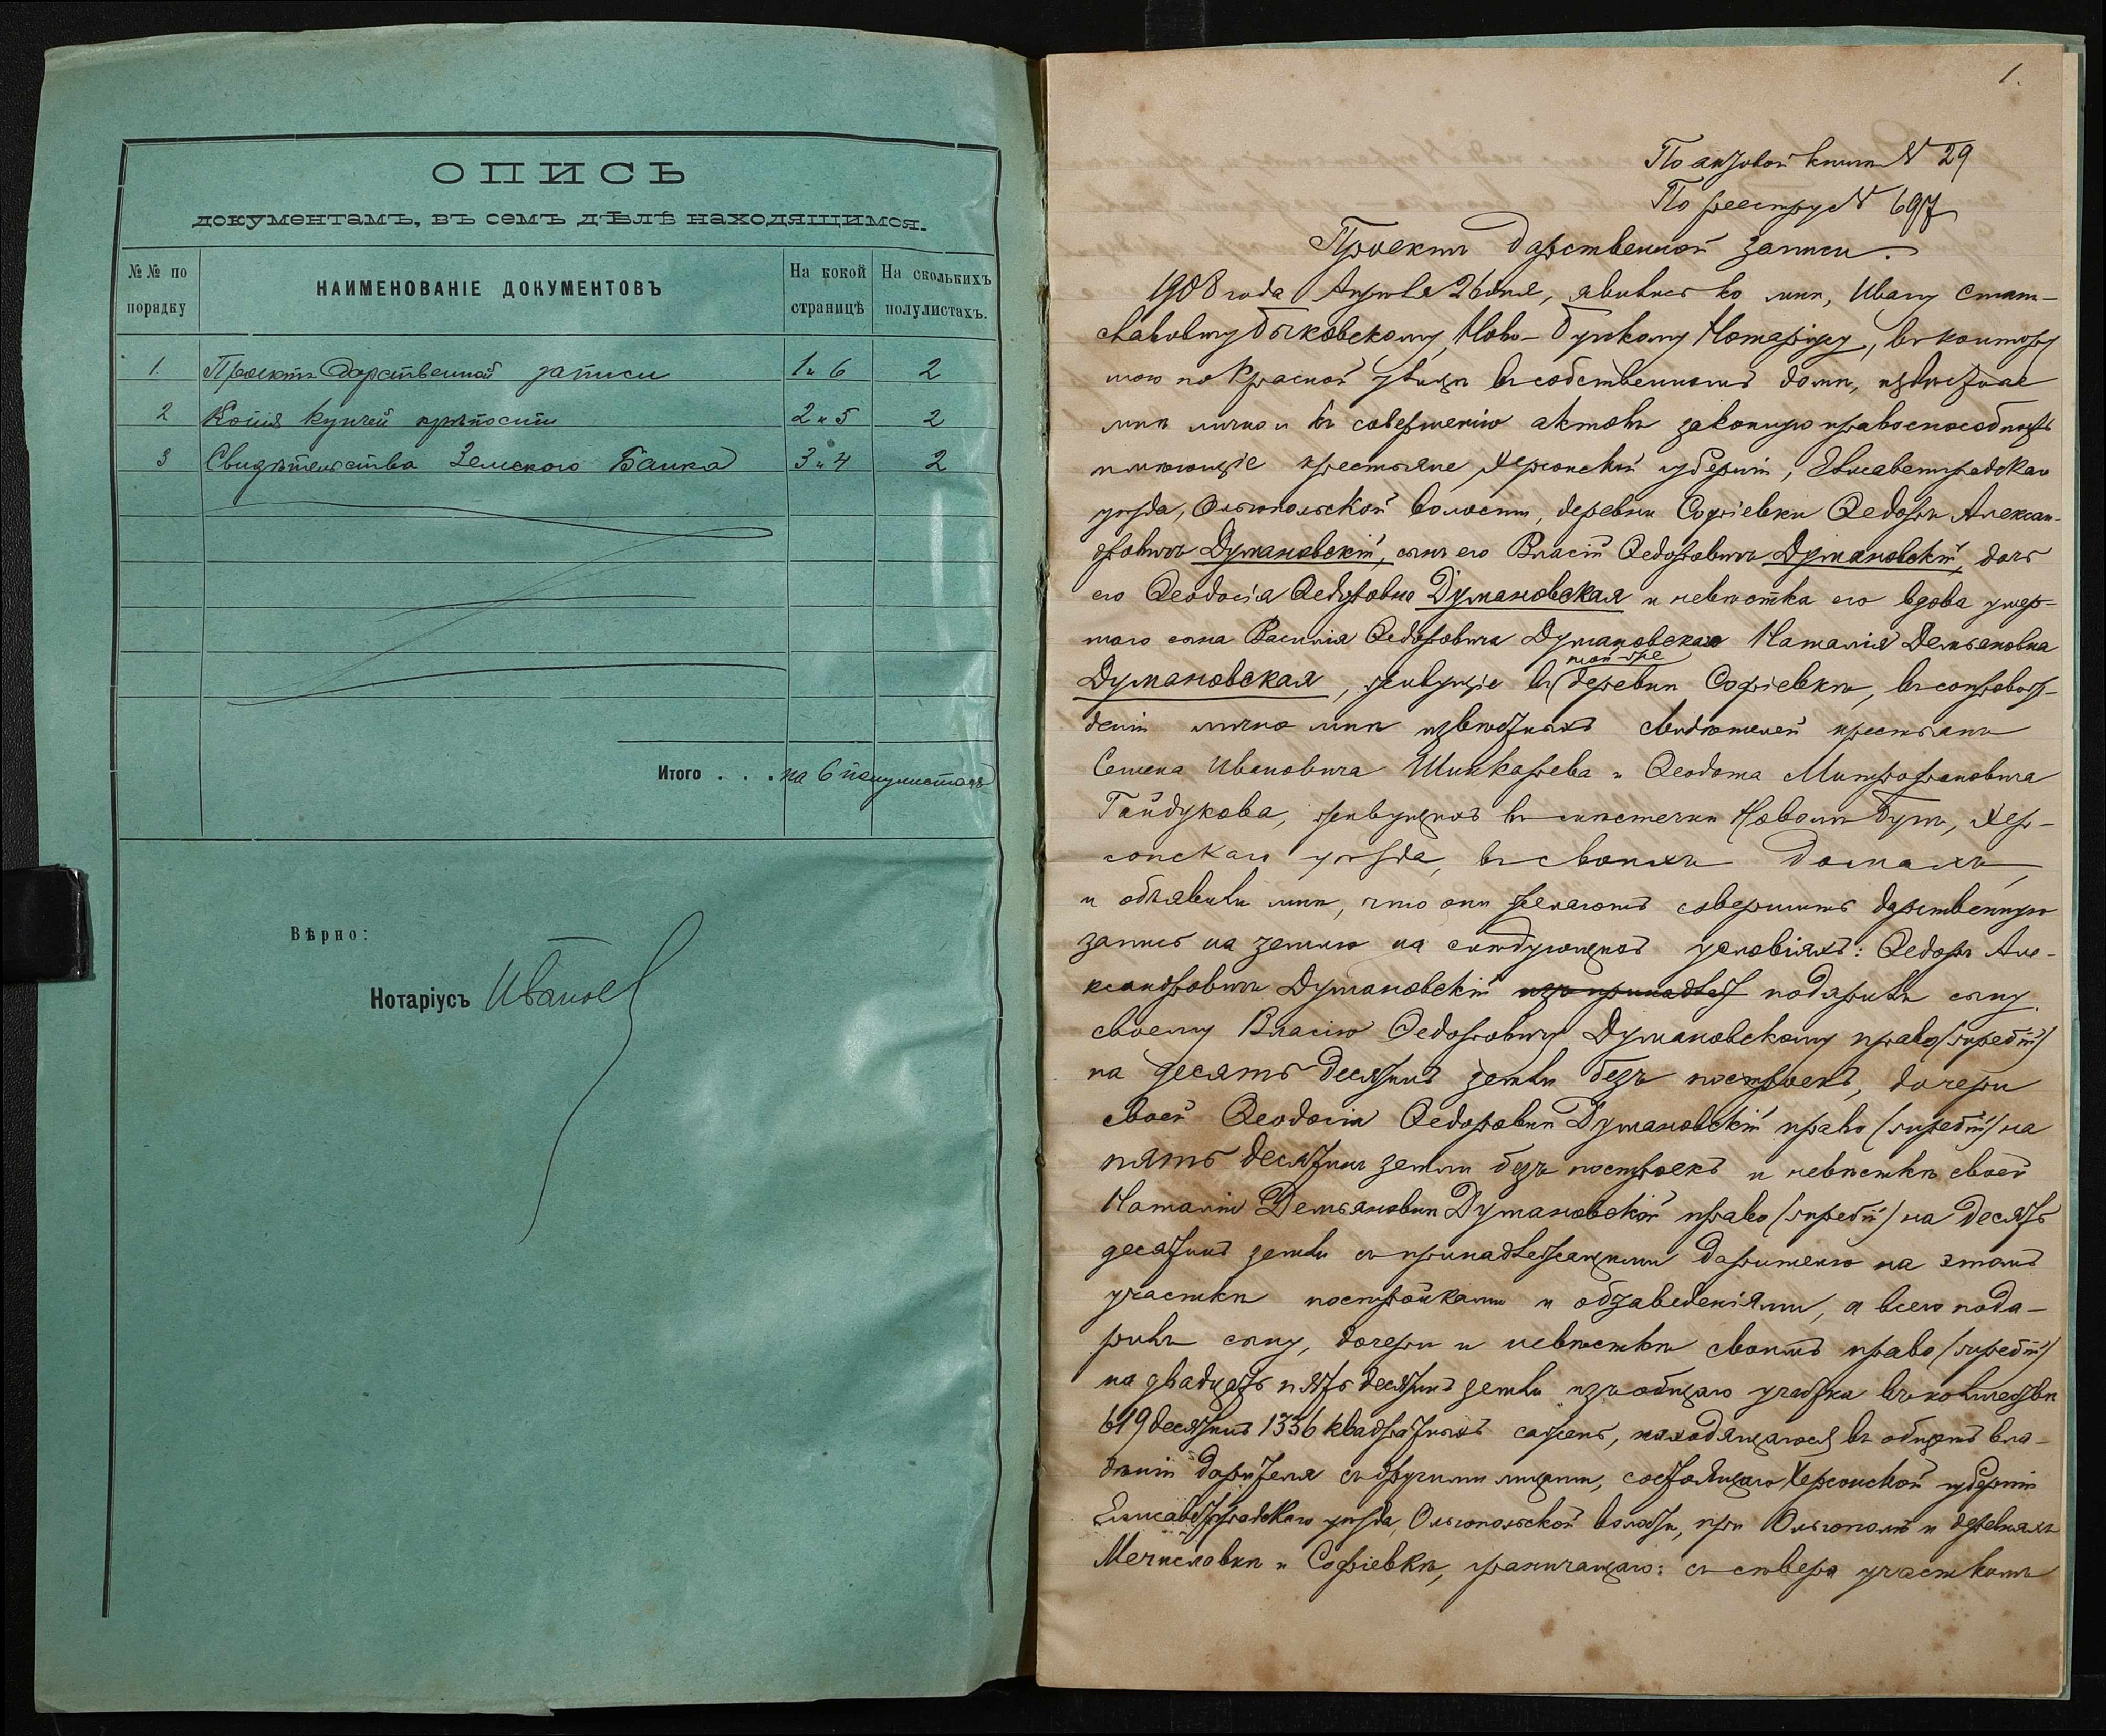 ОПИСЬ
документамъ, въ семъ дѣлѣ находящимся.
№№ по порядку
НАИМЕНОВАНІЕ ДОКУМЕНТОВЪ
На кокой страницѣ
На сколькихъ полулистахъ.
1. Проектъ Дарственной записи 1 и 6 2
2 Копія купчей крѣпости 2 и 5 2
3 Свидѣтельства Земскаго Банка 3 и 4 2
Итого . . . на 6 полулистахъ
Вѣрно:
Нотаріусъ Иванов
1.
По актовой книгѣ N 29
По реестру N 697
Проектъ дарственной записи.
1908 года Апрѣля 26 дня, явились ко мнѣ, Ивану Стани-
славовичу Быковскому, Ново-Бугскому Нотаріусу, въ контору
мою по Красной улицѣ въ собственномъ домѣ, извѣстные
мнѣ лично и къ совершенію актовъ законную правоспособность
имѣющіе крестьяне Херсонской губерніи, Елисаветградскаго
уѣзда, Ольгопольской волости, деревни Софіевки Ѳедоръ Алексан-
дровичъ Думановскій, сынъ его Власій Ѳедоровичъ Думановскій, дочь
его Ѳеодосія Ѳедоровна Думановская и невѣстка его вдова умер-
шаго сына Василія Ѳедоровича Думановскаго Наталія Демьяновна
Думановская, живущіе въ той-же деревнѣ Софіевкѣ, въ сопровож-
деніи лично мнѣ извѣстныхъ свидѣтелей крестьянъ
Семена Ивановича Шинкарева и Ѳеодота Митрофановича
Гайдукова, живущихъ въ мѣстечкѣ Новомъ Бугѣ, Хер-
сонскаго уѣзда, въ своихъ домахъ,
и объявили мнѣ, что они желаютъ совершить дарственную
запись на землю на слѣдующихъ условіяхъ: Ѳедоръ Але-
ксандровичъ Думановскій изъ принадлеж подарилъ сыну
своему Власію Ѳедоровичу Думановскому право /жребій/
на десять десятинъ земли безъ построекъ, дочери
своей Ѳеодосіи Ѳедоровнѣ Думановской право /жребій/ на
пять десятинъ земли безъ построекъ и невѣсткѣ своей
Наталіи Демьяновнѣ Думановской право /жребій/ на десять
десятинъ земли съ принадлежащими дарителю на этомъ
участкѣ постройками и обзаведеніями, а всего пода-
рилъ сыну, дочери и невѣсткѣ своимъ право /жребій/
на двадцать пять десятинъ земли изъ общаго участка въ количествѣ
619 десятинъ 1336 квадратныхъ сажень, находящагося въ общемъ вла-
дѣніи дарителя съ другими лицами, состоящаго Херсонской губерніи
Елисаветградскаго уѣзда, Ольгопольской волости, при Ольгополѣ и деревняхъ
Мечиславкѣ и Софіевкѣ, граничащаго: съ сѣвера участкомъ